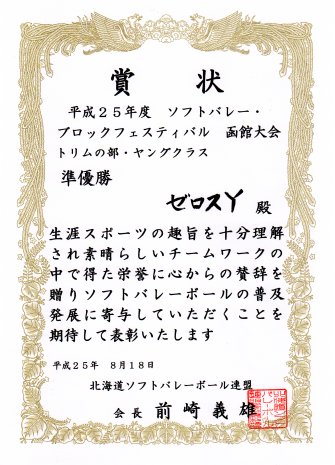 賞状
平成２５年度 ソフトバレー・
ブロックフェスティバル 函館大会
トリムの部・ヤングクラス
準優勝
ゼロスY 殿
生涯スポーツの趣旨を十分理解
され素晴らしいチームワークの
中で得た栄誉に心からの賛辞を
贈りソフトバレーボールの普及
発展に寄与していただくことを
期待して表彰いたします
平成２５年 ８月１８日
北海道ソフトバレーボール連盟
会長 前崎義雄